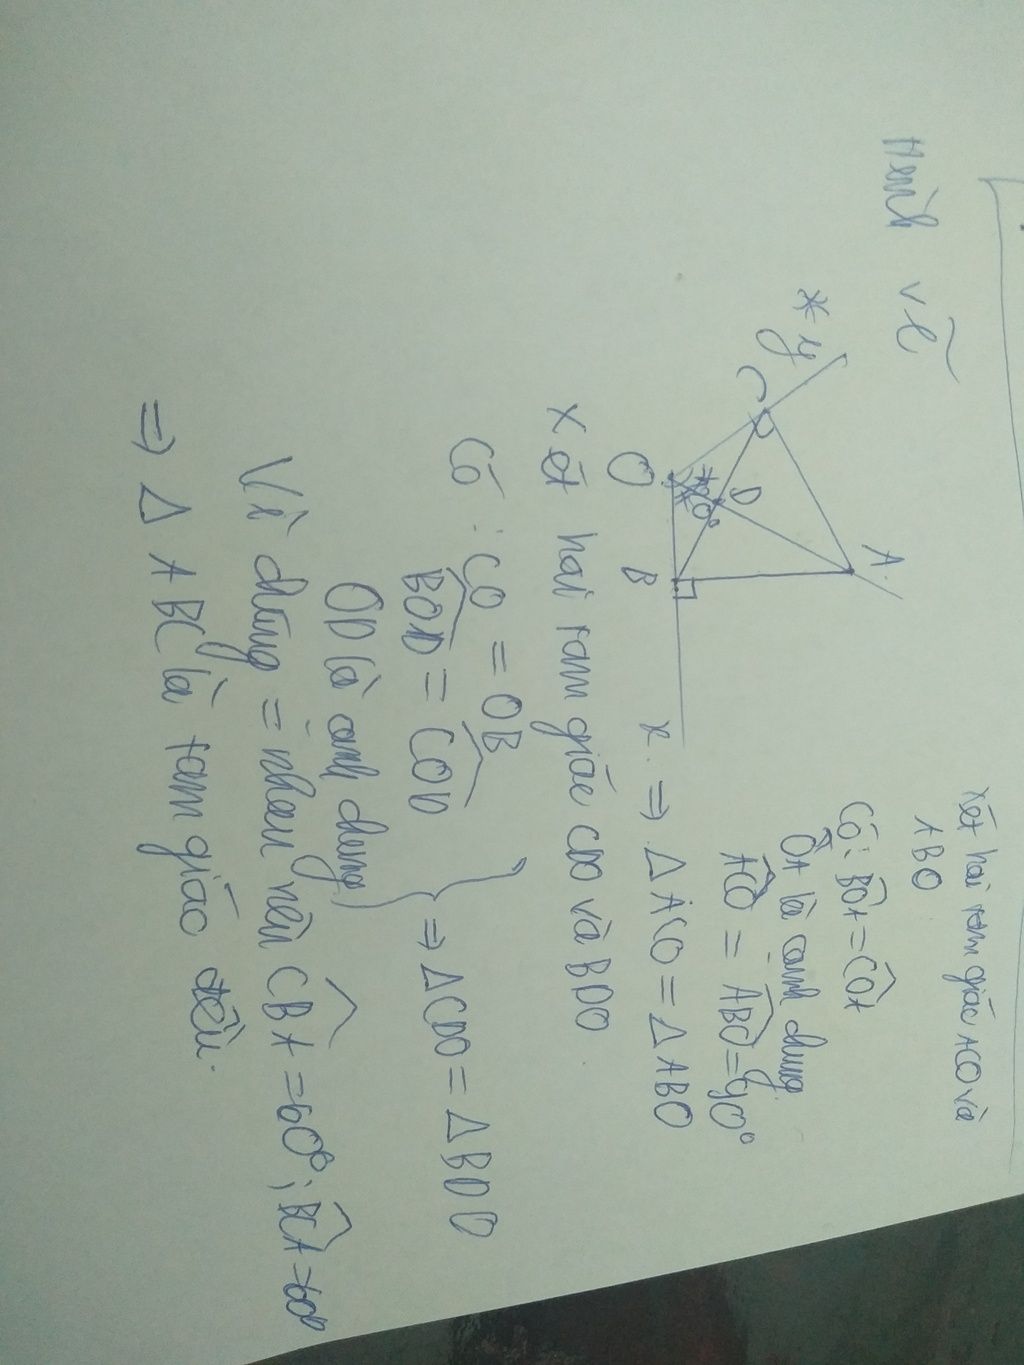 Hình vẽ
* y
C
A
D
120°
O
B
x
Xét hai tam giác ACO và
ABO
Có: BOA = COA
OA là cạnh chung
ACO = ABO = 90°
=> Δ ACO = Δ ABO
Xét hai tam giác CDO và BDO
Có : CO = OB
BOD = COD
OD là cạnh chung
=> Δ CDO = Δ BDO
Vì chúng = nhau nên CBA = 60° ; BCA = 60°
=> Δ ABC là tam giác đều.